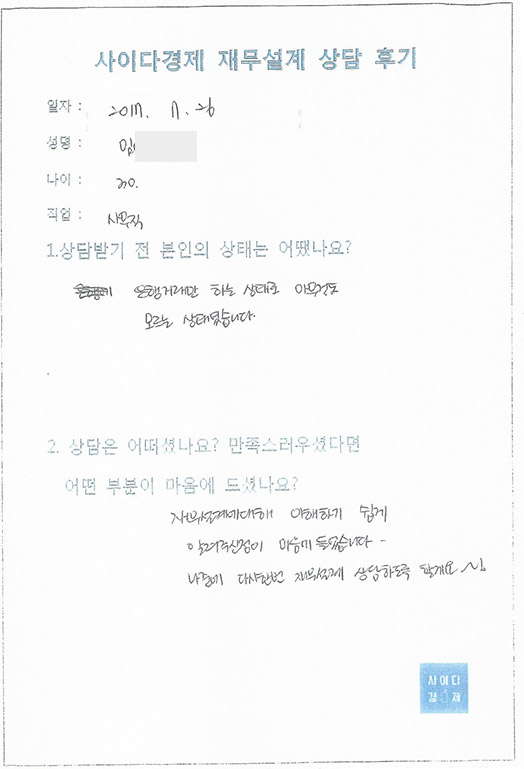 사이다경제 재무설계 상담 후기
일자 : 2017. 11. 26
성명 : 임
나이 : 30.
직업 : 사무직
1.상담받기 전 본인의 상태는 어땠나요?
은행거래만 하는 상태로 아무것도
모르는 상태였습니다.
2. 상담은 어떠셨나요? 만족스러우셨다면
어떤 부분이 마음에 드셨나요?
재무설계에대해 이해하기 쉽게
알려주신점이 마음에 들었습니다 -
나중에 다시한번 재무설계 상담하도록 할게요 ~
사이다
경제